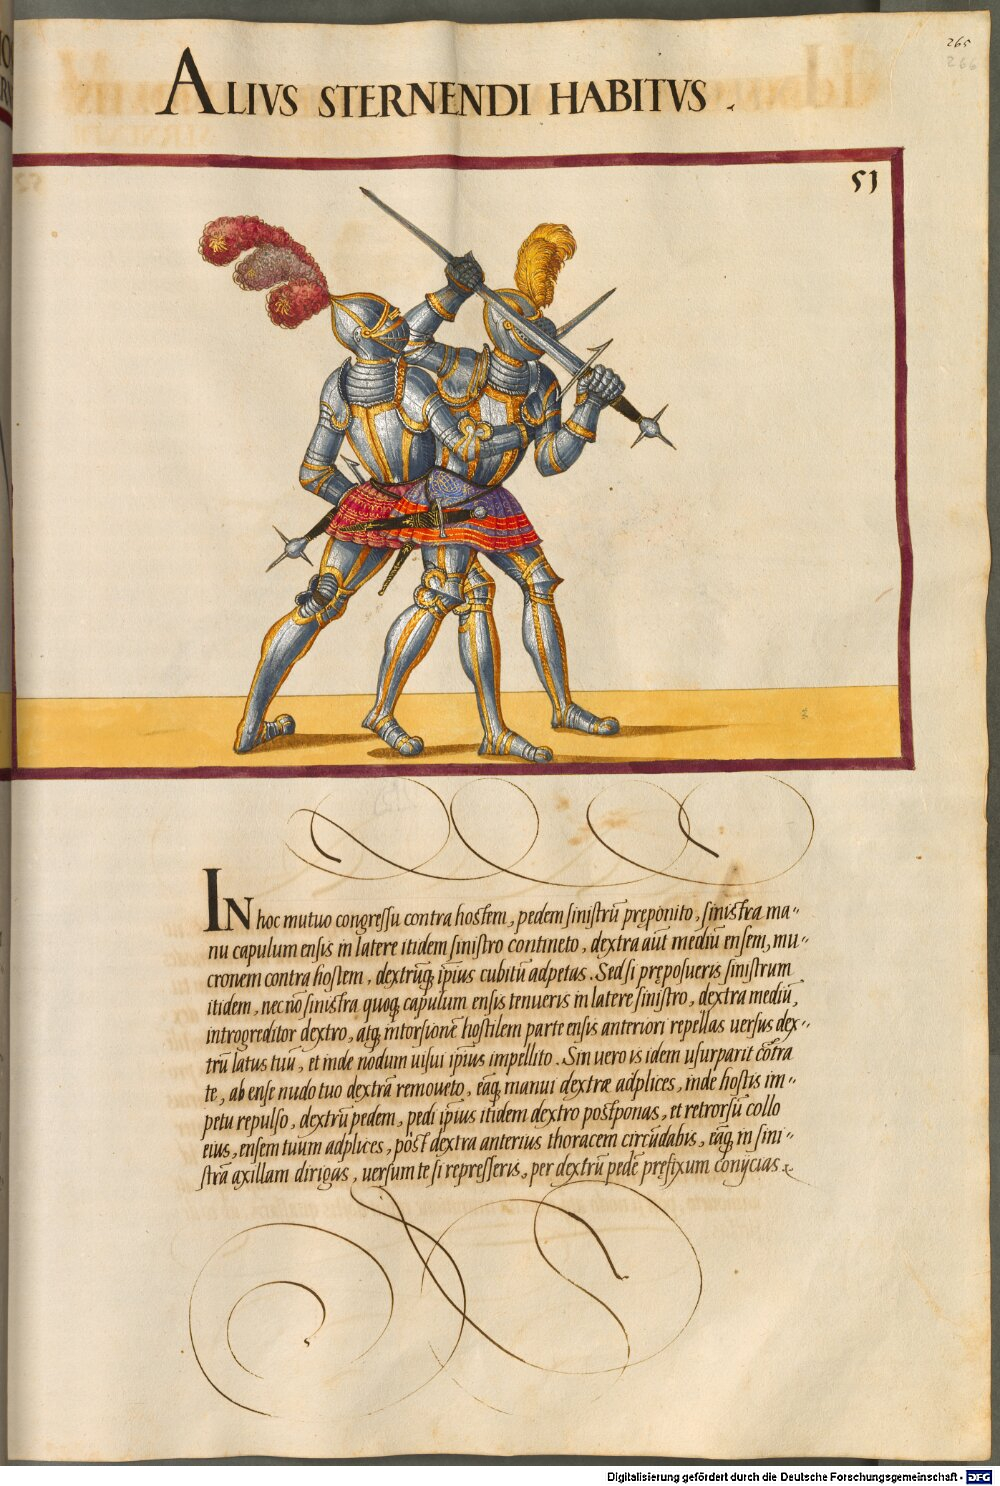 265
266
ALIVS STERNENDI HABITVS .
51
IN hoc mutuo congressu contra hostem, pedem sinistrũ pręponito, sinistra ma„
nu capulum ensis in latere itidem sinistro contineto, dextra aũt mediũ ensem, mu„
cronem contra hostem, dextrũq; ipsius cubitũ adpetas. Sed si pręposueris sinistrum
itidem, necnõ sinistra quoq; capulum ensis tenueris in latere sinistro, dextra mediũ,
introgreditor dextro, atq; intorsionẽ hostilem parte ensis anteriori repellas uersus dex„
trũ latus tuũ, et inde nodum uisui ipsius impellito. Sin uero is idem usurparit cõtra
te, ab ense nudo tuo dextrã remoueto, eãq; manui dextræ adplices, inde hostis im„
petu repulso, dextrũ pedem, pedi ipsius itidem dextro postponas, et retrorsũ collo
eius, ensem tuum adplices, post dextra anterius thoracem circũdabis, eãq; in sini„
strã axillam dirigas, uersum te si represseris, per dextrũ pedẽ pręfixum conijcias.
Digitalisierung gefördert durch die Deutsche Forschungsgemeinschaft - DFG